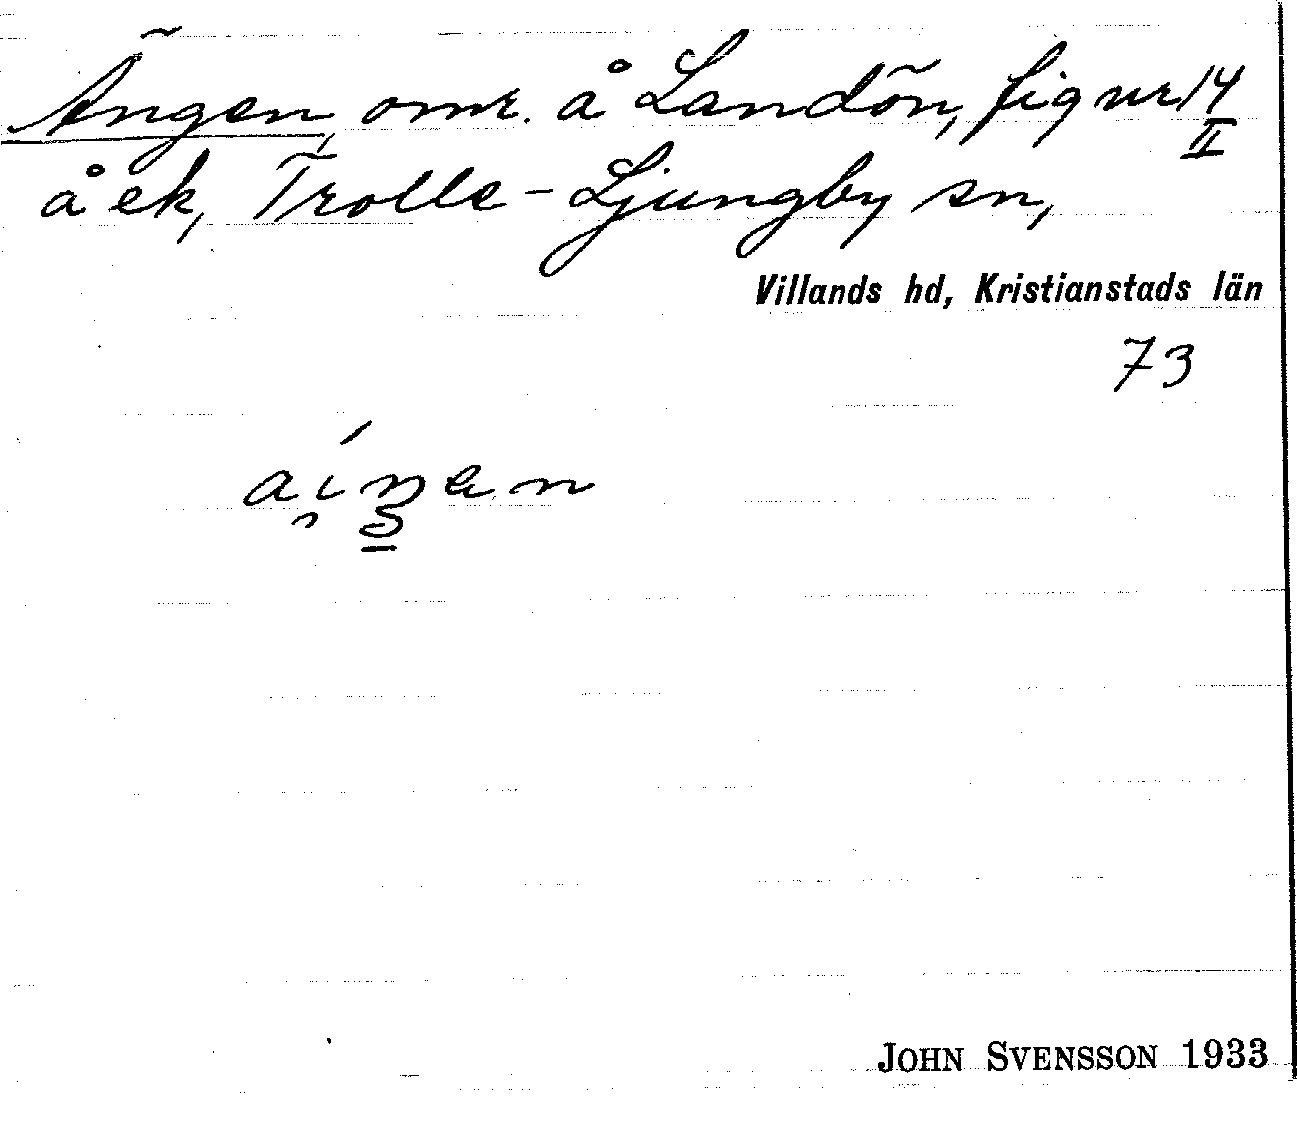 Ängen, omr. å Landön, figur 14
II
å ek, Trolle-Ljungby sn,
Villands hd, Kristianstads län
73
JOHN SVENSSON 1933